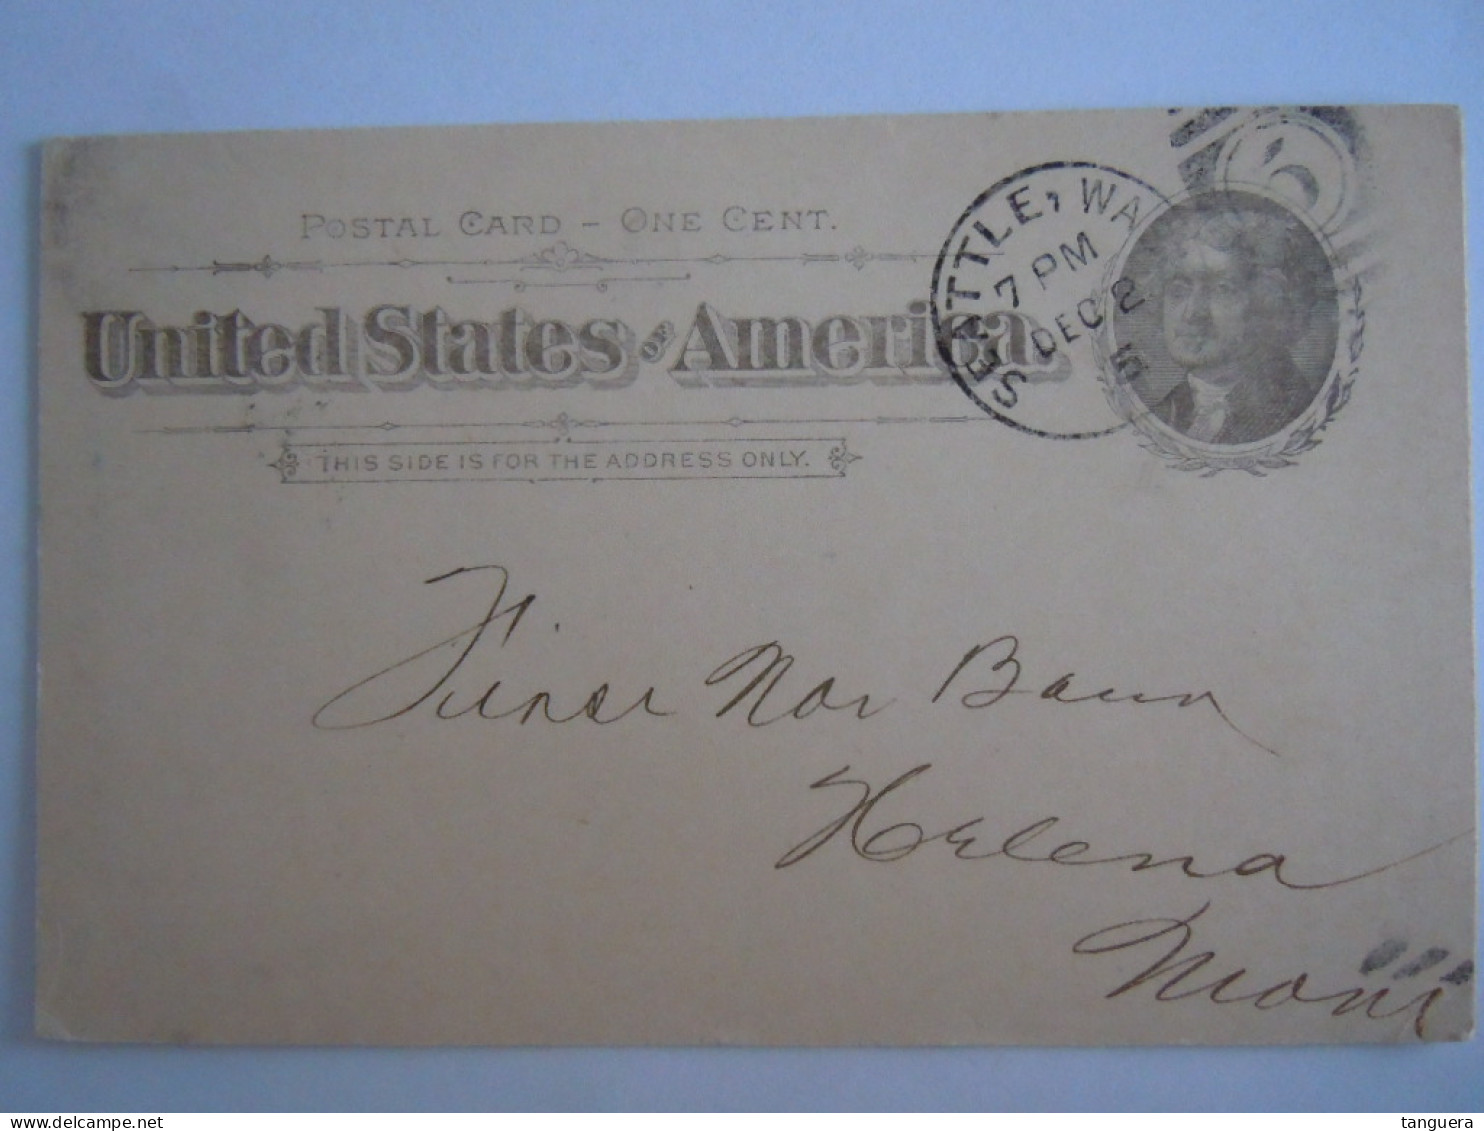 POSTAL CARD – ONE CENT.
United States OF America.
THIS SIDE IS FOR THE ADDRESS ONLY.
SEATTLE, WA
7 PM
DEC 2
6
First Nat Bank
Helena
Mont
tanguera